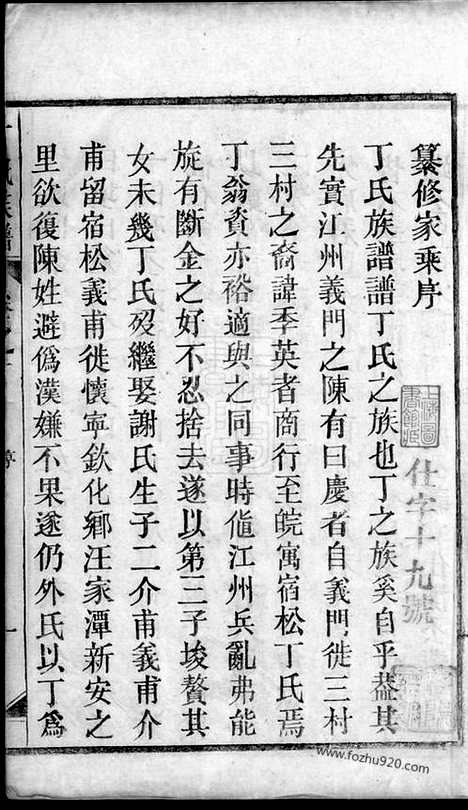 纂修家乘序
仕字十九號
丁氏族譜譜丁氏之族也丁之族奚自乎葢其
先實江州義門之陳有曰慶者自義門徙三村
三村之裔諱季英者商行至皖寓宿松丁氏焉
丁翁資亦裕適與之同事時值江州兵亂弗能
旋有斷金之好不忍捨去遂以第三子埈贅其
女未幾丁氏歿繼娶謝氏生子二介甫義甫介
甫留宿松義甫徙懷寧欽化鄉汪家潭新安之
里欲復陳姓避僞漢嫌不果遂仍外氏以丁爲
www.fozhu920.com